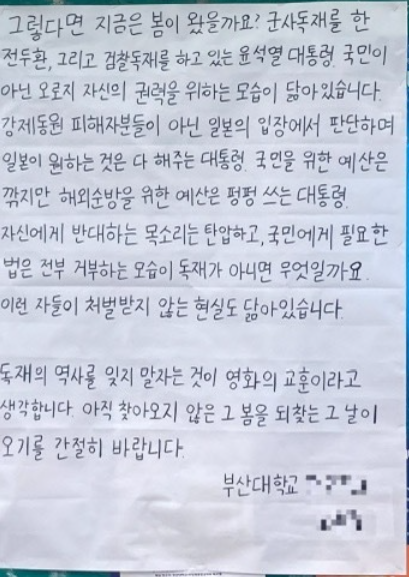 그렇다면 지금은 봄이 왔을까요? 군사독재를 한
전두환, 그리고 검찰독재를 하고 있는 윤석열 대통령. 국민이
아닌 오로지 자신의 권력을 위하는 모습이 닮아있습니다.
강제동원 피해자분들이 아닌 일본의 입장에서 판단하며
일본이 원하는 것은 다 해주는 대통령. 국민을 위한 예산은
깎지만 해외순방을 위한 예산은 펑펑 쓰는 대통령.
자신에게 반대하는 목소리는 탄압하고, 국민에게 필요한
법은 전부 거부하는 모습이 독재가 아니면 무엇일까요.
이런 자들이 처벌받지 않는 현실도 닮아있습니다.
독재의 역사를 잊지 말자는 것이 영화의 교훈이라고
생각합니다. 아직 찾아오지 않은 그 봄을 되찾는 그 날이
오기를 간절히 바랍니다.
부산대학교